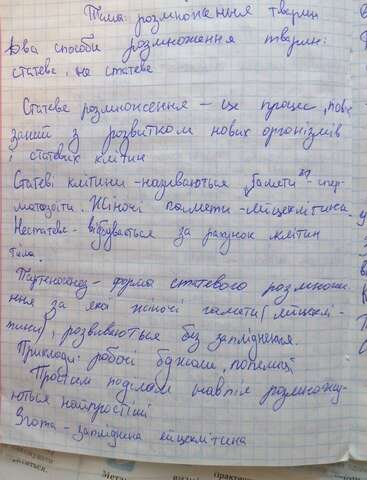 Тема: розмноження тварин
Два способи розмноження тварин:
статеве, не статеве
Статеве розмноження – це процес, пов'я
заний з розвитком нових організмів
і статевих клітин
Статеві клітини - називаються гамети спер-
матозоїти. Жіночі гамети - яйцеклітина.
Нестатеве - відбувається за рахунок клітин
тіла.
Партеногенез - форма статевого розмноже
ння за якої жіночі гамети (яйцеклі-
тини), розвиваються без запліднення.
Приклади: робочі бджоли, попелиці
Простим поділом навпіл розмножу-
ються найпростіші
Зигота - запліднина яйцеклітина